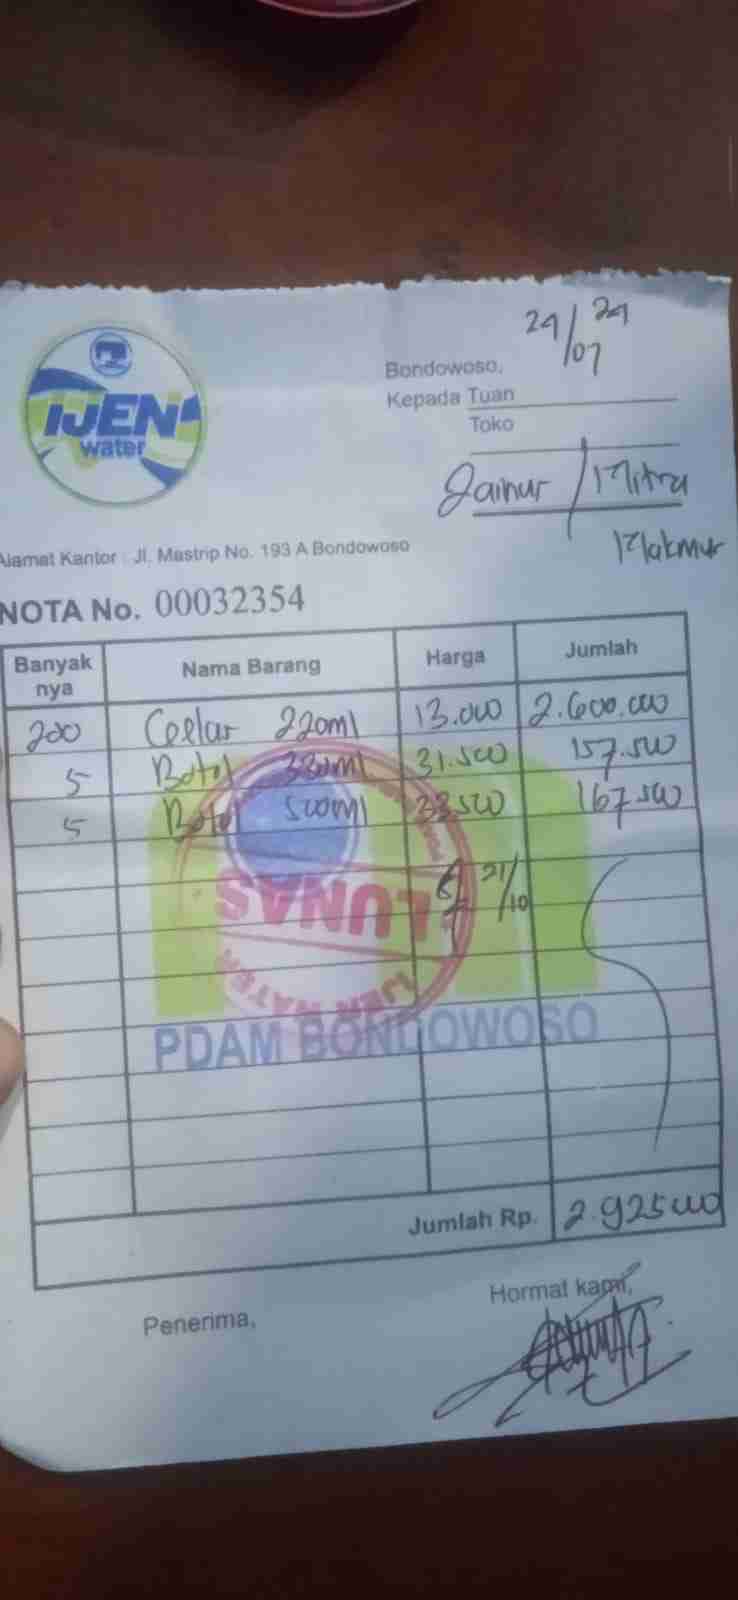 IJEN
water
29/07 24
Bondowoso,
Kepada Tuan
Toko
Jainur / Mitra
Makmur
Alamat Kantor : Jl. Mastrip No. 193 A Bondowoso
NOTA No. 00032354
Banyak nya Nama Barang Harga Jumlah
200 Ceelar 220ml 13.000 2.600.000
5 Botol 330ml 31.500 157.500
5 Botol 500ml 33.500 167.500
21/10
LUNAS
IJEN WATER
PDAM BONDOWOSO
Jumlah Rp. 2.925.000
Penerima,
Hormat kami,